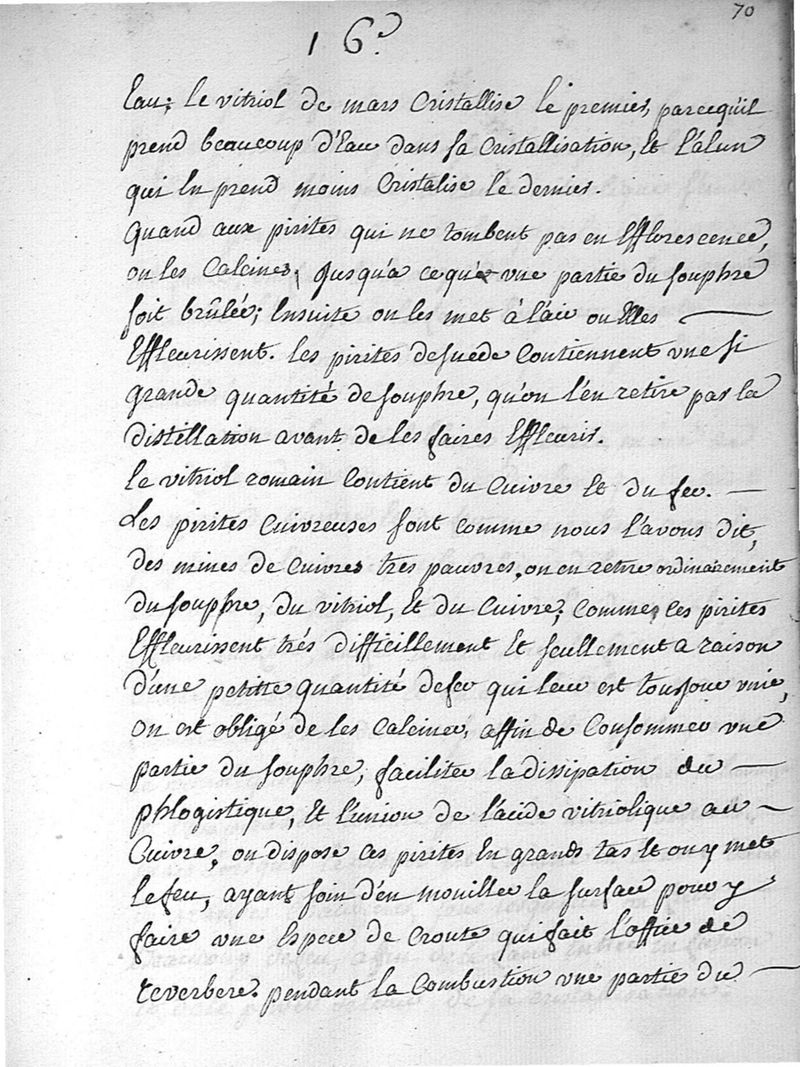 70
16e
Eau; le vitriol de mars Cristallise le premier, parcequ'il
prend beaucoup d'Eau dans sa Cristallisation, Et l'alun
qui En prend moins Cristalise le dernier.
Quand aux pirites qui ne tombent pas en Efflorescence,
on les Calcine, Jusqu'a ce qu'une partie du souphre
soit brûlée; Ensuite on les met à l'air ou Elles —
Effleurissent. les pirites de suede Contiennent une si
grande quantité de souphre, qu'on l'en retire par la
distéllation avant de les faires Effleurir.
le vitriol romain Contient du Cuivre Et du fer. —
Les pirites Cuivreuses sont comme nous l'avons dit,
des mines de Cuivres tres pauvres, on en retire ordinairement
du souphre, du vitriol, Et du Cuivre; Comme ces pirites
Effleurissent trés difficillement Et seullement a raison
d'une petitte quantité de fer qui leur est toujour unie,
on est obligé de les Calciner, affin de Consommer une
partie du souphre, faciliter la dissipation du —
phlogistique, Et l'union de l'acide vitriolique au —
Cuivre, on dispose ces pirites En grands tas Et on y met
le feu, ayant soin d'en mouiller la surface pour y
faire une Espece de croute qui fait l'office de
reverbere. pendant la Combustion une partie du —